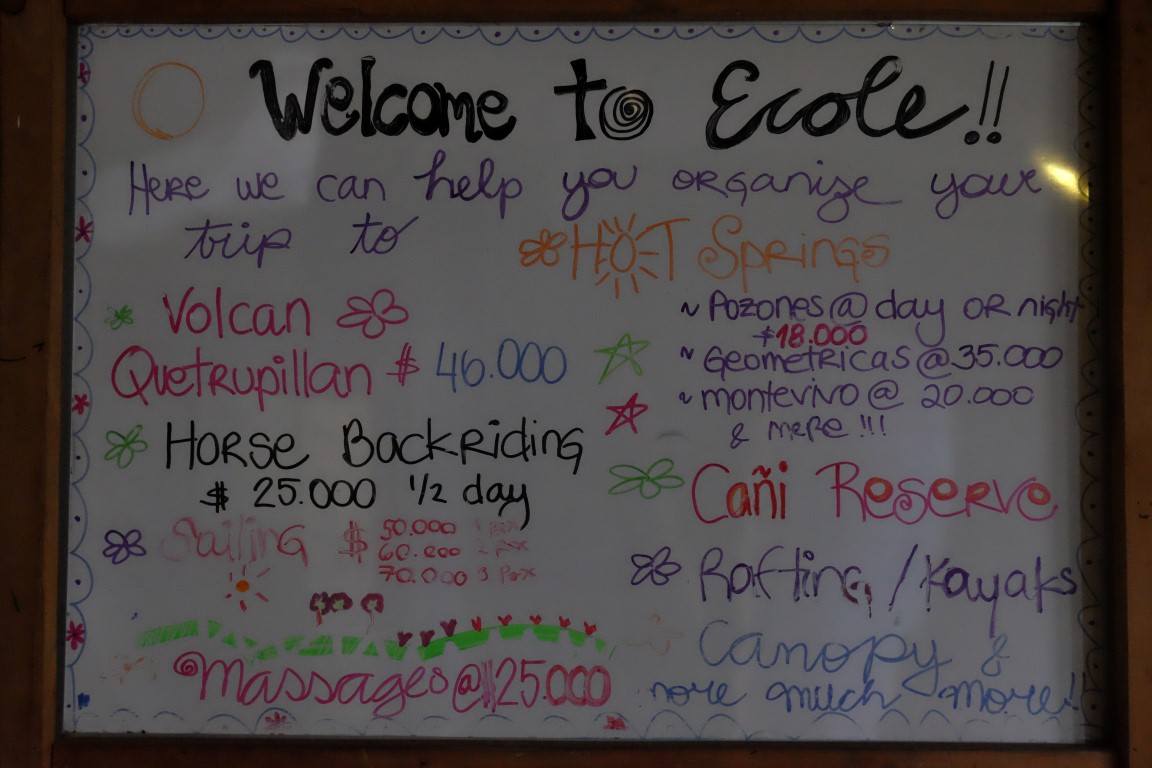 Welcome to Ecole!!
Here we can help you organize your
trip to
HOT Springs
~ Pozones @ day or night
$18.000
~ Geometricas @ 35.000
~ montevivo @ 20.000
& more !!!
Volcan
Quetrupillan $ 46.000
Horse Backriding
$ 25.000 1/2 day
Sailing $ 50.000 1 pax
60.000 2 pax
70.000 3 pax
Massages @ $25.000
Cañi Reserve
Rafting / Kayaks
Canopy &
more much more!!